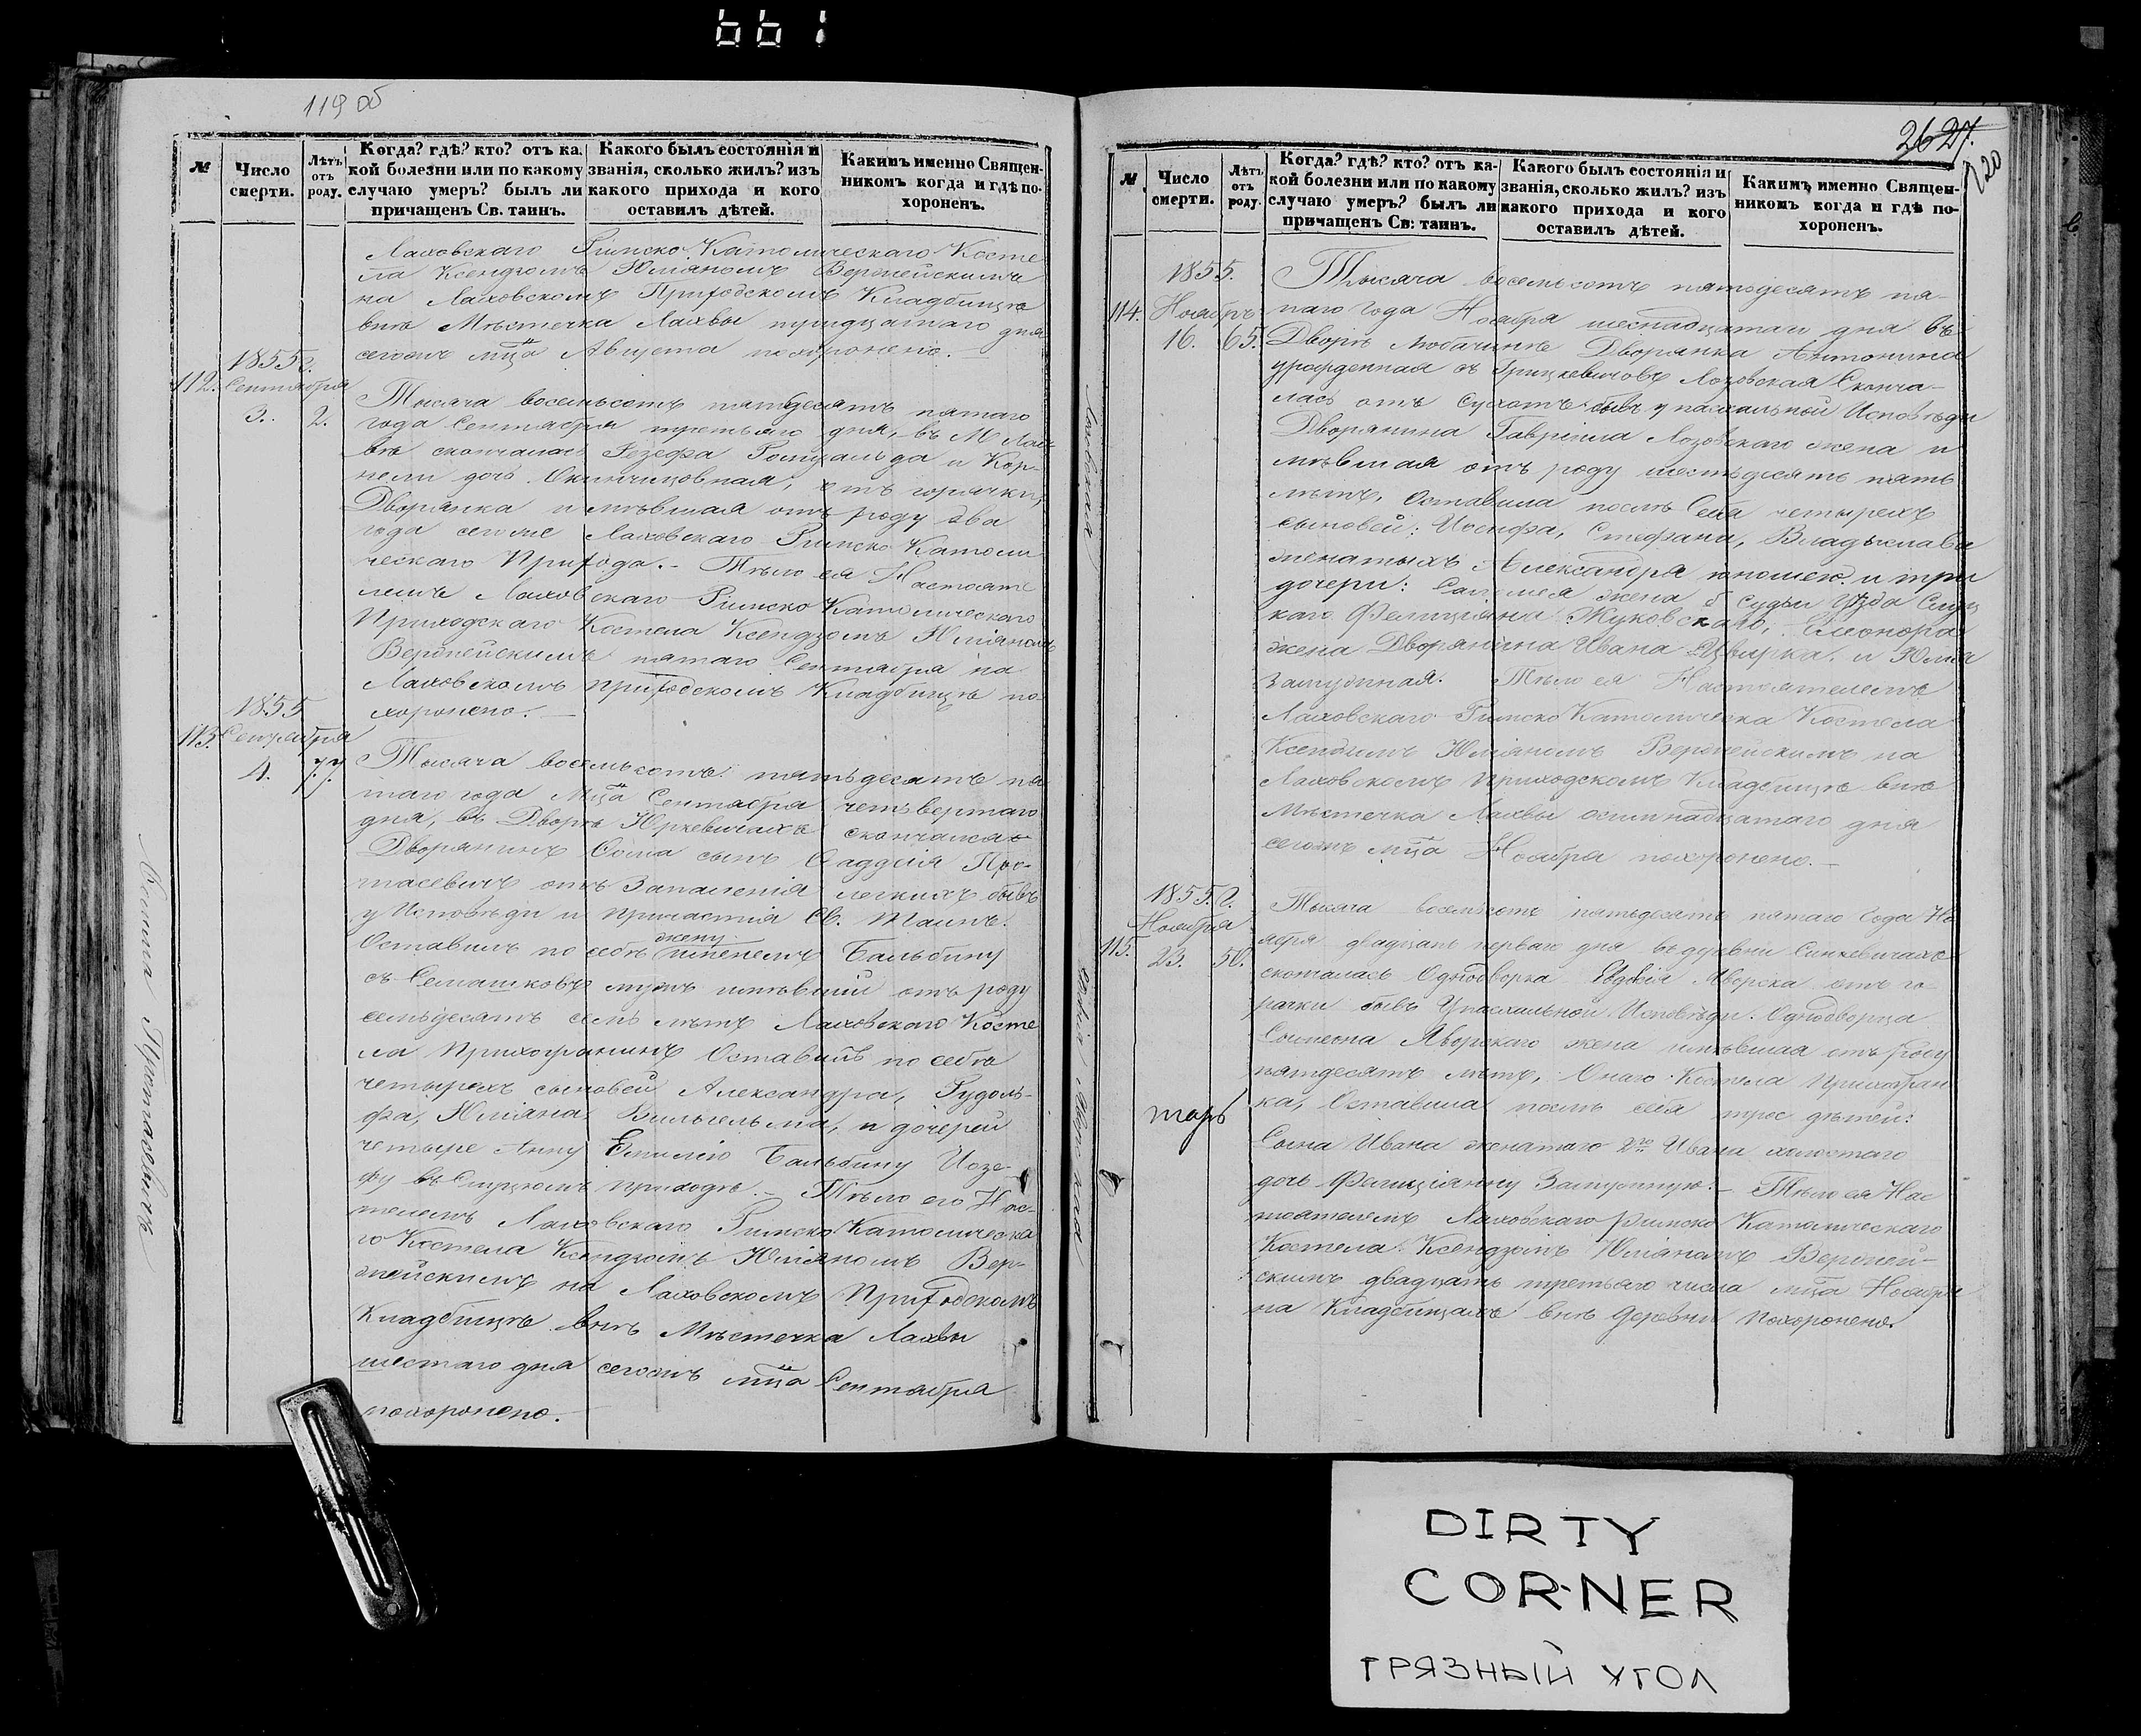 661
119 об
№
Число смерти.
Лѣтъ отъ роду.
Когда? гдѣ? кто? отъ ка-
кой болезни или по какому
случаю умеръ? былъ ли
причащенъ Св. таинъ.
Какого былъ состоянія и
званія, сколько жилъ? изъ
какого прихода и кого
оставилъ дѣтей.
Какимъ именно Священ-
никомъ когда и гдѣ по-
хороненъ.
Лаховскаго Римско Католическаго Косте
ла Ксендзомъ Юліяномъ
на Лаховскомъ Приходскомъ Кладбищѣ
внѣ Мѣстечка Лахвы тридцатаго дня
сегожъ мца Августа похоронено.
1855 г.
112. Сентября
3. 2.
Тысяча восемьсотъ пятьдесятъ пятаго
года Сентября третьяго дня, въ М Лах
вѣ скончалась Іозефа Ромуальда и Кор-
нели дочь, отъ горячки,
Дворянка имѣвшая отъ роду два
года сегоже Лаховскаго Римско Католи
ческаго Прихода. - Тѣло ея Настояте
лемъ Лаховскаго Римско Католическаго
Приходскаго Костела Ксендзомъ Юліяномъ
пятаго Сентября на
Лаховскомъ приходскомъ Кладбищѣ по-
хоронено. -
1855
113. Сентября
4. 77
Тысяча восемьсотъ пятьдесятъ пя
таго года Мца Сентября четвертаго
дня, въ Дворѣ Юркевичахъ скончался
Дворянинъ Ѳома сынъ Ѳаддея Про-
тасевичъ отъ Запаленія легкихъ бывъ
у Исповѣди и причастія Св. Таинъ.
жену
Оставилъ по себѣ Бальбину
съ Семашковъ мужъ имѣвшій отъ роду
семьдесятъ семь лѣтъ Лаховскаго Косте
ла Прихожанинъ Оставилъ по себѣ
четырехъ сыновей Александра, Рудоль-
фа, Юліяна, Вильгельма, и дочерей
четыре Анну Емилію Бальбину Иозе-
фу въ Слуцкомъ приходѣ. - Тѣло его Нас-
телемъ Лаховскаго Римско Католическа
го Костела Ксендзомъ Юліяномъ
на Лаховскомъ Приходскомъ
Кладбищѣ внѣ Мѣстечка Лахвы
шестаго дня сегожъ мца Сентября
похоронено. -
Ѳома Протасевичъ
26 27.
120
№
Число смерти.
Лѣтъ отъ роду.
Когда? гдѣ? кто? отъ ка-
кой болезни или по какому
случаю умеръ? былъ ли
причащенъ Св: таинъ.
Какого былъ состоянія и
званія, сколько жилъ? изъ
какого прихода и кого
оставилъ дѣтей.
Какимъ именно Священ-
никомъ когда и гдѣ по-
хороненъ.
1855.
114. Ноября
16. 65.
Тысяча восемьсотъ пятьдесятъ пя-
таго года Ноября шеснадцатаго дня въ
Дворѣ Любачинѣ Дворянка Антонина
урожденная съ Грицкевичовъ Лозовская Сконча-
лась отъ Сухотъ бывъ у пасхальной Исповѣди
Дворянина Гавріила Лозовскаго жена и
мѣвшая отъ роду шестьдесятъ пять
лѣтъ. Оставила послѣ Себя четырехъ
сыновей: Иосифа, Стефана, Владыслава
женатыхъ Александра юношею и три
дочери: Саломея жена Судьи Уѣзда Слуц
каго Фелиціяна Жуковскаго, Елеонора
жена Дворянина Ивана Цвирка, и Юлія
Замужная. Тѣло ея Настоятелемъ
Лаховскаго Римско Католическа Костела
Ксендзомъ Юліяномъ на
Лаховскомъ приходскомъ Кладбищѣ внѣ
Мѣстечка Лахвы осминадцатаго дня
сегожъ мца Ноября похоронено. -
Лозовская
1855 г.
Ноября
115. 23. 50.
Тысяча восемьсотъ пятьдесятъ пятаго Года Но
ября двадцать перваго дня въ деревни Синкевичахъ
скончалась Однодворка Евдокія Яворска отъ го
рячки бывъ У пасхальной Исповѣди. Однодворца
Яворскаго жена имѣвшая отъ роду
пятдесятъ лѣтъ, Онаго Костела Прихожан
ка, Оставила послѣ себя трое дѣтей:
Сына Ивана женатаго 2го Ивана холостаго
дочь Фелиціянну Замужную. - Тѣло ея Нас
тоятелемъ Лаховскаго Римско Католическаго
Костела Ксендзомъ Юліяномъ
двадцать третьяго числа мца Ноября
на Кладбищахъ внѣ деревни похоронено.
DIRTY
CORNER
ГРЯЗНЫЙ УГОЛ